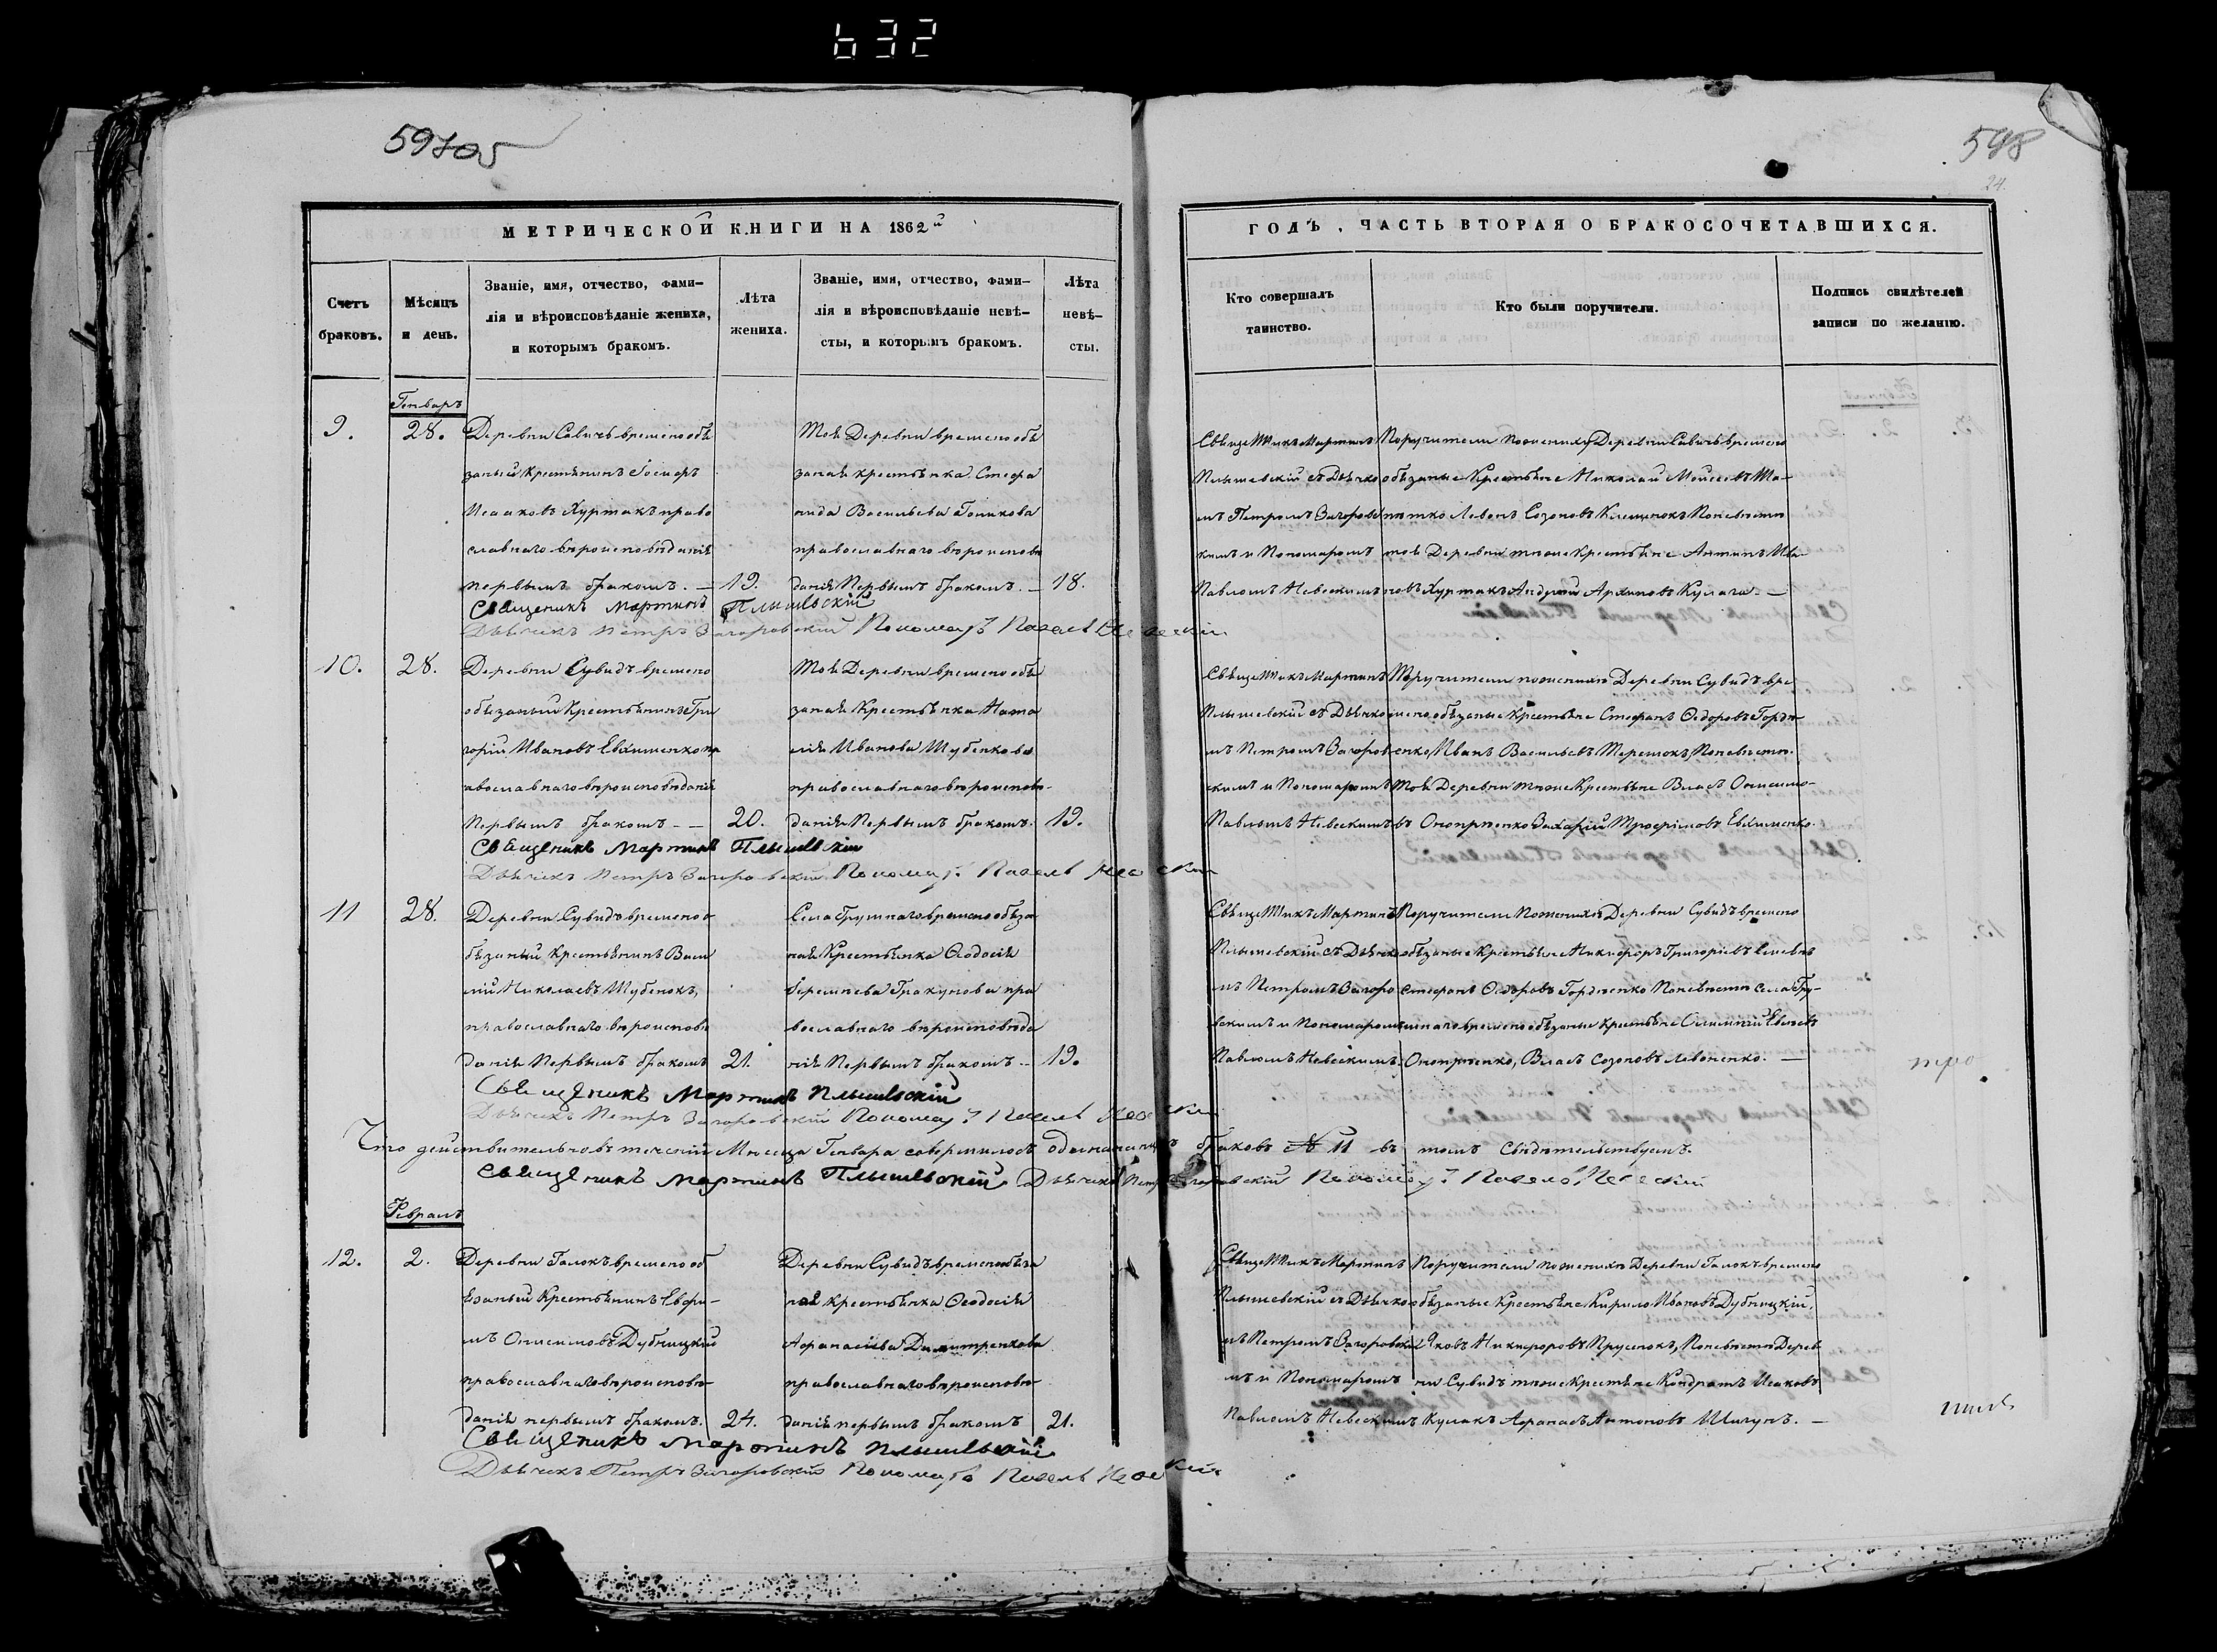 632
597об
598
24.
МЕТРИЧЕСКОЙ КНИГИ НА 1862й
ГОДЪ, ЧАСТЬ ВТОРАЯ О БРАКОСОЧЕТАВШИХСЯ.
Счетъ браковъ.
Мѣсяцъ и день.
Званіе, имя, отчество, фами-
лія и вѣроисповѣданіе жениха,
и которымъ бракомъ.
Лѣта
жениха.
Званіе, имя, отчество, фами-
лія и вѣроисповѣданіе невѣ-
сты, и которымъ бракомъ.
Лѣта
невѣ-
сты.
Кто совершалъ
таинство.
Кто были поручители.
Подпись свидѣтелей
записи по желанію.
Генварь
9.
28.
Деревни Савичъ временообя
заный крестьянинъ Іосифъ
Исааковъ Хуртакъ право
славнаго вѣроисповѣданія
первымъ бракомъ. —
19.
Тоя Деревни временообя
заная крестьянка Стефа
нида Васильева
православнаго вѣроисповѣ
данія Первымъ бракомъ. —
18.
Мартинъ
Плышевскій съ Дьячко
мъ Петромъ Загоровс
кимъ и Пономаромъ
Павломъ Невскимъ
Поручители по женихѣ Деревни Савичъ времено
обязаные Крестьяне Николай Моисеевъ
Левонъ Созоновъ По невѣстѣ
тоя Деревни крестьяне Антипъ Ива
новъ Хуртакъ Андрей Архиповъ Кулага. —
Священикъ Мартинъ Плышевскій
Дьячекъ Петръ Загоровскій Пономарь Павелъ Невскій
10.
28.
Деревни Сувидъ времено
обязаный Крестьянинъ Гри
горій Ивановъ Евхименко пр
авославнаго вѣроисповѣданія
Первымъ бракомъ — —
20.
Тоя Деревни временообя
заная Крестьянка Ната
лія Иванова Шубенкова
православнаго вѣроисповѣ-
данія Первымъ бракомъ.
19.
Мартинъ
Плышевскій съ Дьячко
мъ Петромъ Загоров
скимъ и Пономаромъ
Павломъ Невскимъ
Поручители по женихѣ Деревни Сувидъ вре
менообязаные Крестьяне Стефанъ Ѳедоровъ Гордѣ-
енко, Иванъ Васильевъ Терешокъ, По невѣстѣ
Тоя Деревни Крестьяне Власъ Онисимо-
въ Оноприенко Захарій Трофимовъ Евхименко.
Священикъ Мартинъ Плышевскій
Дьячекъ Петръ Загоровскій Пономарь Павелъ Невскій
11
28.
Деревни Сувидъ временоо
бязаный Крестьянинъ Васи
лій Николаевъ Шубенокъ,
православнаго вѣроисповѣ
данія Первымъ бракомъ
21.
Села временообяза
ная Крестьянка Ѳеодосія
Еремѣева пра
вославнаго вѣроисповѣда
нія Первымъ бракомъ —
19.
Мартинъ
Плышевскій съ Дьячко
мъ Петромъ Загоро
вскимъ и Пономаромъ
Павломъ Невскимъ
Поручители По женихѣ Деревни Сувидъ времено
обязаные Крестьяне Никифоръ Григоріевъ
Стефанъ Ѳедоровъ Гордѣенко По невѣстѣ села
временообязаные Крестьяне
Оноприенко, Власъ Созоновъ Левоненко. —
Священикъ Мартинъ Плышевскій
Дьячекъ Петръ Загоровскій Пономарь Павелъ Невскій
Что действительно въ теченіи Мѣсяца Генвара совершилось одинанацать браковъ № 11 въ томъ Свѣдѣтельствуемъ.
Священикъ Мартинъ Плышевскій Дьячекъ Петръ Загоровскій Пономарь Павелъ Невскій
Февраль
12.
2.
Деревни Галокъ временооб
язаный Крестьянинъ Ефи-
мъ Онисимовъ Дубницкій
православнаго вѣроисповѣ-
данія первымъ бракомъ.
24.
Деревни Сувидъ временообяза
ная крестьянка Ѳеодосія
Афанасіева Димитренкова
православнаго вѣроисповѣ-
данія первымъ бракомъ
21.
Мартинъ
Плышевскій съ Дьячко
мъ Петромъ Загоровски
мъ и Пономаромъ
Павломъ Невскимъ
Поручители по женихѣ Деревни Галокъ времено
обязаные Крестьяне Кирило Ивановъ Дубницкій,
Яковъ Никифоровъ Прусенокъ, По невѣстѣ Дерев
ни Сувидъ Крестьяне Кондратъ Исаковъ
Кулакъ Афанасъ Антоновъ Шигунъ. —
Священикъ Мартинъ Плышевскій
Дьячекъ Петръ Загоровскій Пономарь Павелъ Невскій